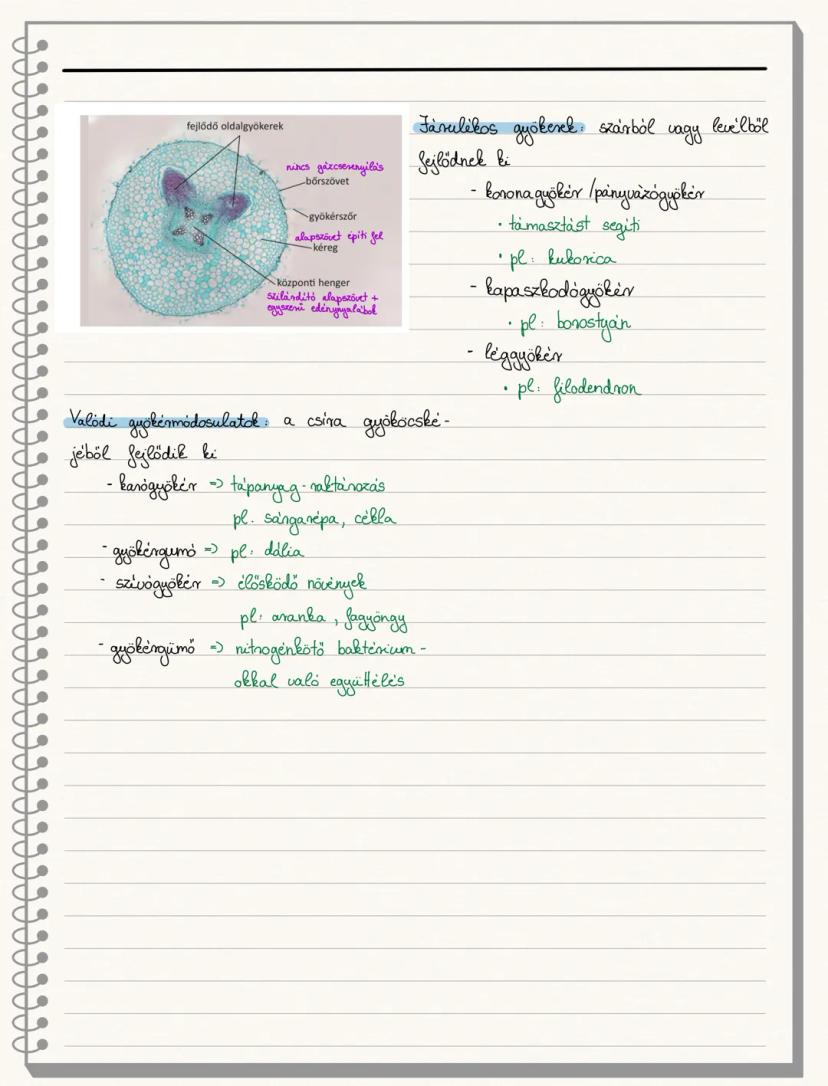 fejlődő oldalgyökerek
nincs gázcserenyílás
bőrszövet
gyökérszőr
alapszövet építi fel
kéreg
központi henger
szilárdító alapszövet +
egyszerű edénynyalábok
Járulékos gyökerek: szárból vagy levélből
fejlődnek ki
- koronagyökér /pányvázógyökér
• támasztást segíti
• pl: kukorica
- kapaszkodógyökér
• pl: borostyán
- léggyökér
• pl: filodendron
Valódi gyökérmódosulatok: a csíra gyököcské-
jéből fejlődik ki
- karógyökér => tápanyag-raktározás
pl. sárgarépa, cékla
- gyökérgumó => pl: dália
- szívógyökér => élősködő növények
pl: aranka, fagyöngy
- gyökérgümő => nitrogénkötő baktérium-
okkal való együttélés